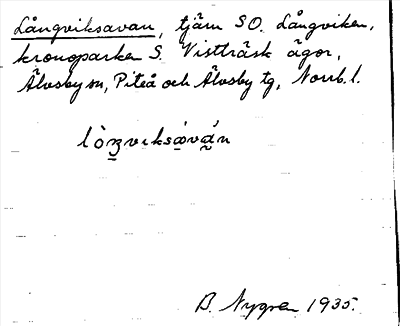 Långviksavan, tjärn SO. Långviken,
kronoparken S. Vistträsk ägor,
Älvsby sn, Piteå och Älvsby tg, Norrb. l.
B. Nygren 1935.